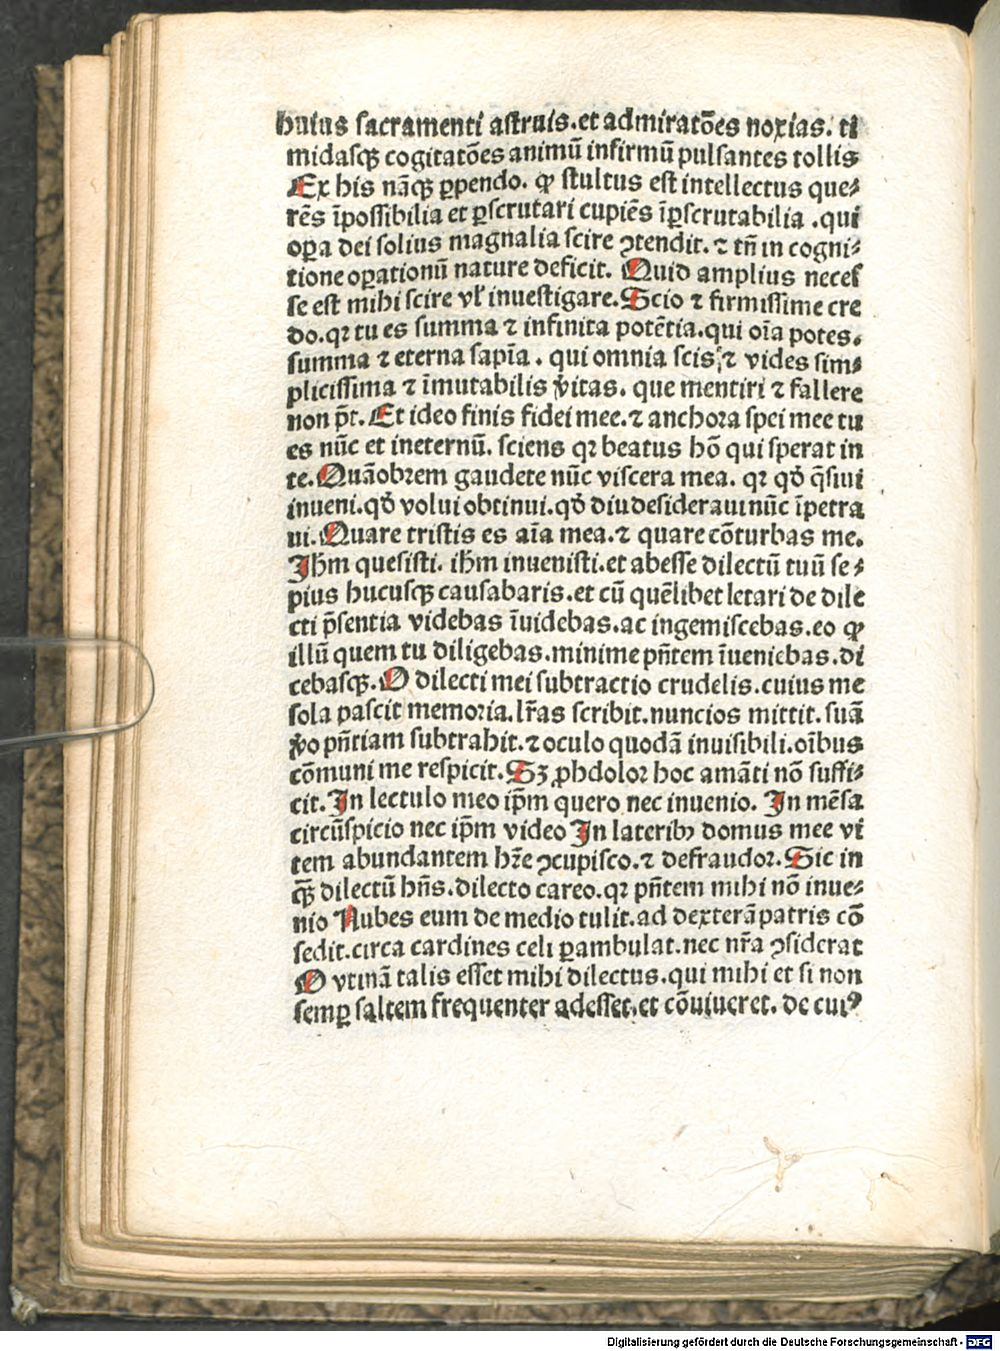 huius sacramenti astruis.et admiratōes noxias. ti
midasqꝫ cogitatōes animū infirmū pulsantes tollis
Ex his nāqꝫ ꝑpendo. ꝙ stultus est intellectus que⸗
rēs īpossibilia et ꝑscrutari cupiēs īꝑscrutabilia .qui
oꝑa dei solius magnalia scire ꝯtendit. ⁊ tn̄ in cogni⸗
tione oꝑationū nature deficit. Quid amplius necес
se est mihi scire vl' inuestigare. Scio ⁊ firmissime cre
do.qꝛ tu es summa ⁊ infinita potētia.qui oīa potes.
summa ⁊ eterna sapīa . qui omnia scis,⁊ vides sim⸗
plicissima ⁊ īmutabilis v̄itas. que mentiri ⁊ fallere
non pt̄. Et ideo finis fidei mee.⁊ anchora spei mee tu
es nūc et ineternū. sciens qꝛ beatus hō qui sperat in
te. Quāobrem gaudete nūc viscera mea. qꝛ qd̄ q̄siui
inueni.qd̄ volui obtinui.qd̄ diu desideraui nūc īpetra
ui. Quare tristis es aīa mea.⁊ quare cōturbas me.
Ihm̄ quesisti. ihm̄ inuenisti.et abesse dilectū tuū se⸗
pius hucusqꝫ causabaris.et cū quēlibet letari de dile
cti p̄sentia videbas īuidebas.ac ingemiscebas.eo ꝙ
illū quem tu diligebas.minime pn̄tem īueniebas.di
cebasqꝫ. O dilecti mei subtractio crudelis.cuius me
sola pascit memoria.lr̄as scribit.nuncios mittit.suā
v̄o pn̄tiam subtrahit.⁊ oculo quodā inuisibili.oībus
cōmuni me respicit. Sꝫ ꝓhdolor hoc amāti nō suffi⸗
cit. In lectulo meo ip̄m quero nec inuenio. In mēsa
circūspicio nec ip̄m video In lateribꝫ domus mee vi
tem abundantem hr̄e ꝯcupisco.⁊ defraudor. Sic in
qꝫ dilectū hn̄s.dilecto careo.qꝛ pn̄tem mihi nō inue⸗
nio Nubes eum de medio tulit.ad dexterā patris cō
sedit.circa cardines celi ꝑambulat.nec nr̄a ꝯsiderat
O vtinā talis esset mihi dilectus.qui mihi et si non
semꝑ saltem frequenter adesset.et cōuiueret. de cuiꝰ
Digitalisierung gefördert durch die Deutsche Forschungsgemeinschaft - DFG